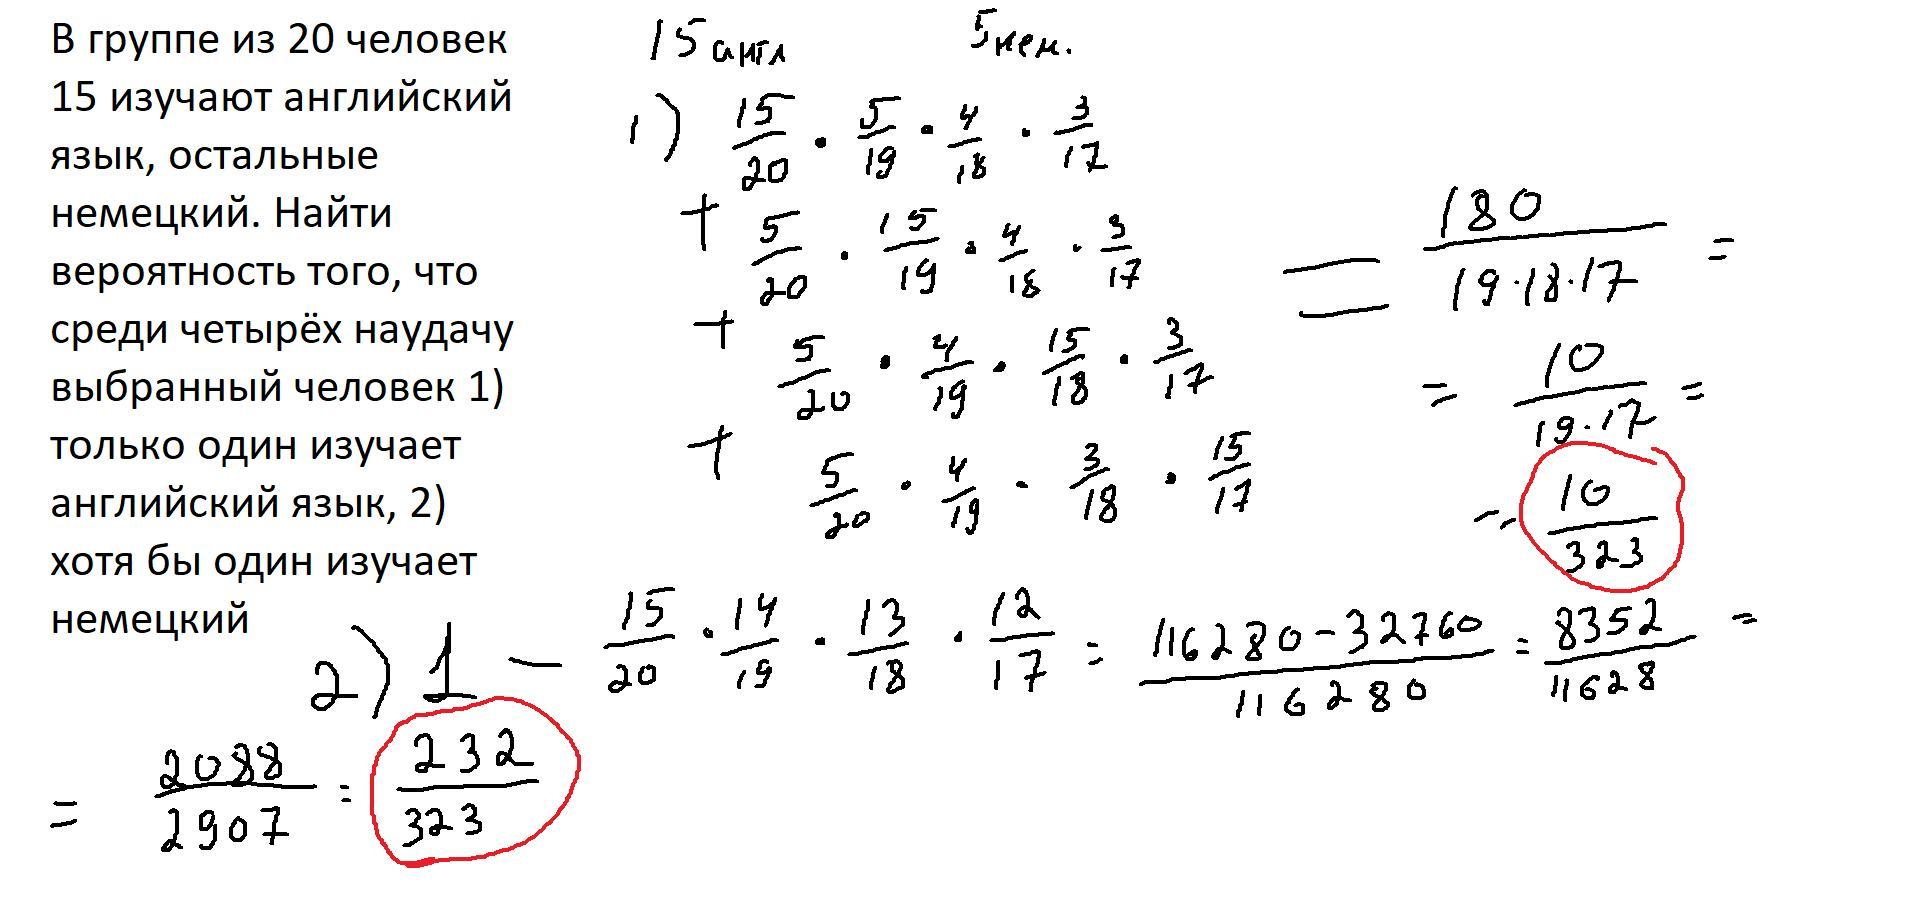 В группе из 20 человек
15 изучают английский
язык, остальные
немецкий. Найти
вероятность того, что
среди четырёх наудачу
выбранный человек 1)
только один изучает
английский язык, 2)
хотя бы один изучает
немецкий
15 англ 5 нем.
1) 15/20 · 5/19 · 4/18 · 3/17
+ 5/20 · 15/19 · 4/18 · 3/17
+ 5/20 · 4/19 · 15/18 · 3/17
+ 5/20 · 4/19 · 3/18 · 15/17
= 180/19·18·17 =
= 10/19·17 =
= 10/323
2) 1 − 15/20 · 14/19 · 13/18 · 12/17 = 116280−32760/116280 = 8352/11628 =
= 2088/2907 = 232/323